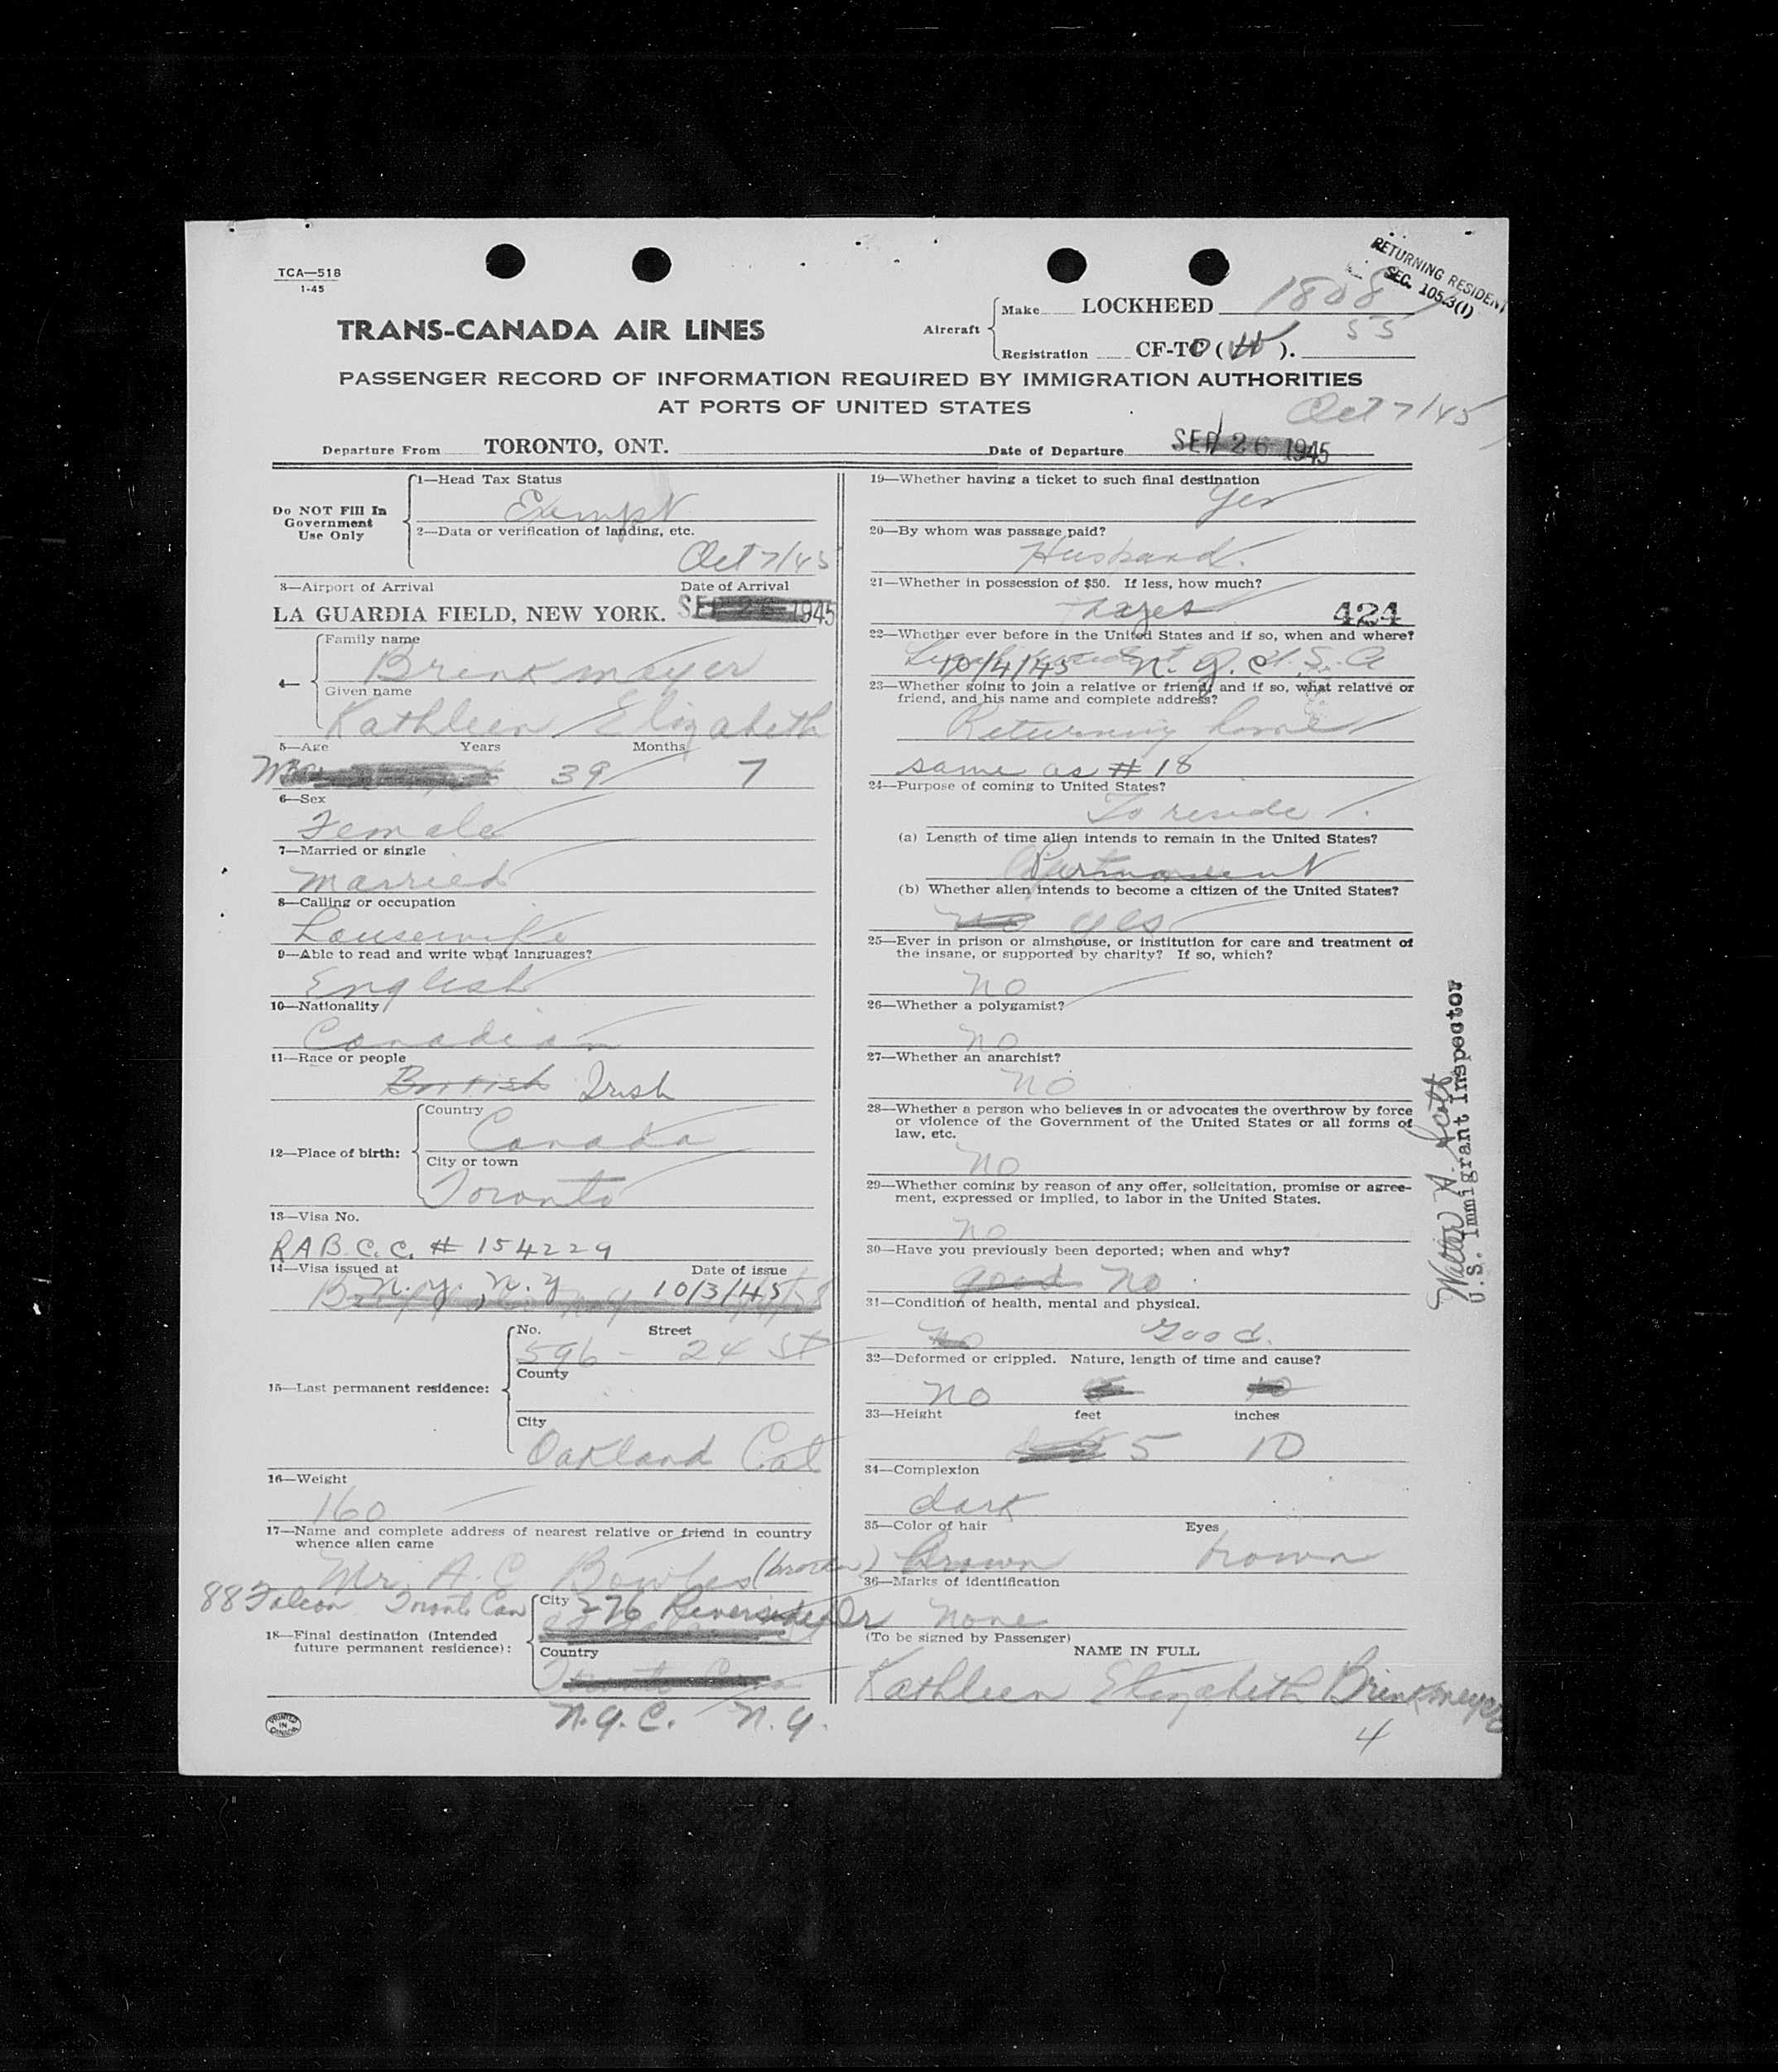 TCA—518
1-45
RETURNING RESIDENT
SEC. 105.3(1)
TRANS-CANADA AIR LINES
Aircraft
Make LOCKHEED 1808
55
Registration CF-TC ( ).
PASSENGER RECORD OF INFORMATION REQUIRED BY IMMIGRATION AUTHORITIES
AT PORTS OF UNITED STATES
Oct 7/45
Departure From TORONTO, ONT.
Date of Departure SEP 26 1945
Do NOT Fill In
Government
Use Only
1—Head Tax Status
Exempt
2—Data or verification of landing, etc.
Oct 7/45
3—Airport of Arrival Date of Arrival
LA GUARDIA FIELD, NEW YORK. SEP 26 1945
4—
Family name
Brinkmeyer
Given name
Kathleen Elizabeth
5—Age Years Months
39 7
6—Sex
Female
7—Married or single
Married
8—Calling or occupation
Housewife
9—Able to read and write what languages?
English
10—Nationality
Canadian
11—Race or people
British Irish
12—Place of birth:
Country
Canada
City or town
Toronto
13—Visa No.
RAB.C.C. # 154229
14—Visa issued at Date of issue
N.Y., N.Y 10/3/45
15—Last permanent residence:
No. Street
596 - 24 St
County
City
Oakland Cal
16—Weight
160
17—Name and complete address of nearest relative or friend in country
whence alien came
Mr. A. C Bowles (brother)
88 Falcon Toronto Can
18—Final destination (Intended
future permanent residence):
City 276 Riverside Dr
Country
N.Y.C. N.Y.
PRINTED
IN
CANADA
19—Whether having a ticket to such final destination
Yes
20—By whom was passage paid?
Husband.
21—Whether in possession of $50. If less, how much?
yes 424
22—Whether ever before in the United States and if so, when and where?
10/4/45 N.Y.C. U.S.A
23—Whether going to join a relative or friend; and if so, what relative or
friend, and his name and complete address?
Returning home
same as # 18
24—Purpose of coming to United States?
To reside
(a) Length of time alien intends to remain in the United States?
Permanent
(b) Whether alien intends to become a citizen of the United States?
no yes
25—Ever in prison or almshouse, or institution for care and treatment of
the insane, or supported by charity? If so, which?
no
26—Whether a polygamist?
no
27—Whether an anarchist?
no
28—Whether a person who believes in or advocates the overthrow by force
or violence of the Government of the United States or all forms of
law, etc.
no
29—Whether coming by reason of any offer, solicitation, promise or agree-
ment, expressed or implied, to labor in the United States.
no
30—Have you previously been deported; when and why?
good no
31—Condition of health, mental and physical.
no Good.
32—Deformed or crippled. Nature, length of time and cause?
no
33—Height feet inches
5 10
34—Complexion
dark
35—Color of hair Eyes
Brown brown
36—Marks of identification
none
(To be signed by Passenger)
NAME IN FULL
Kathleen Elizabeth Brinkmeyer
4
Walter A. Scott
U.S. Immigrant Inspector